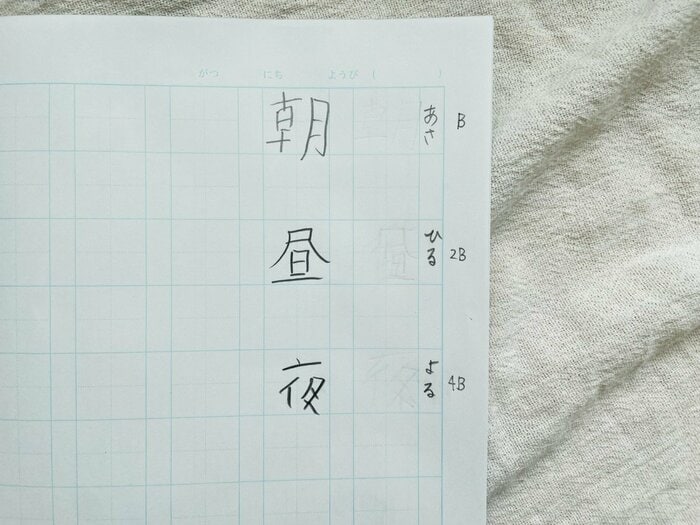 がつ にち ようび( )
朝 朝 あさ B
昼 昼 ひる 2B
夜 夜 よる 4B